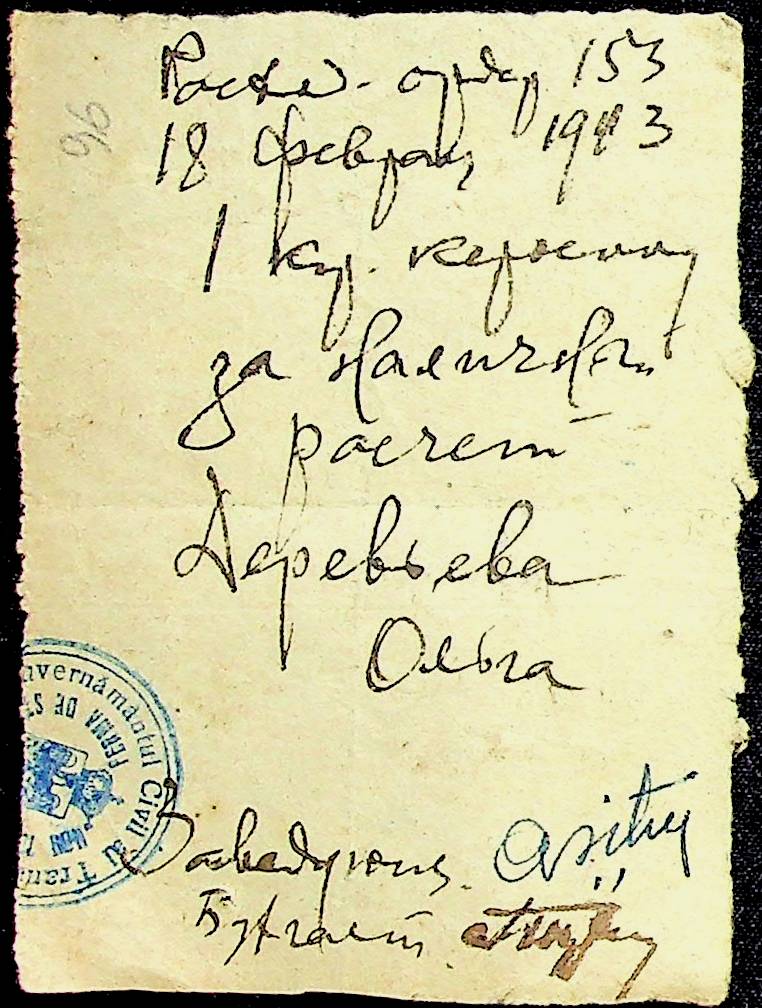 96
ордер 153
18 февраля 1943
1 кг. керосину
за наличный
расчет
Деревьева
Ольга
uvernământul Civil al Tran
FERMA DE ST
Заведующий
Бухгалт